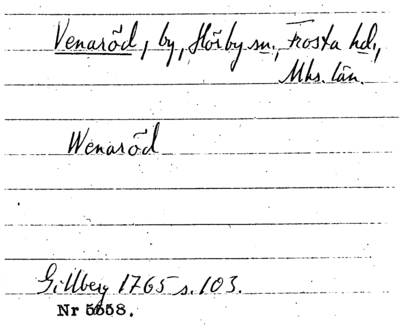 Venaröd, by, Hörby sn., Frosta hd.,
Mhs. län.
Wenaröd
Gillberg 1765 s. 103.
Nr 5658.